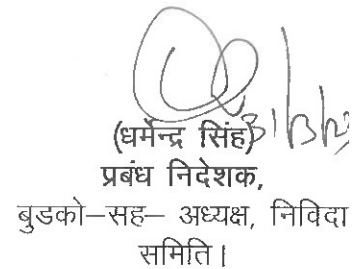 (धर्मेन्द्र सिंह)
प्रबंध निदेशक,
बुडको–सह– अध्यक्ष, निविदा
समिति।